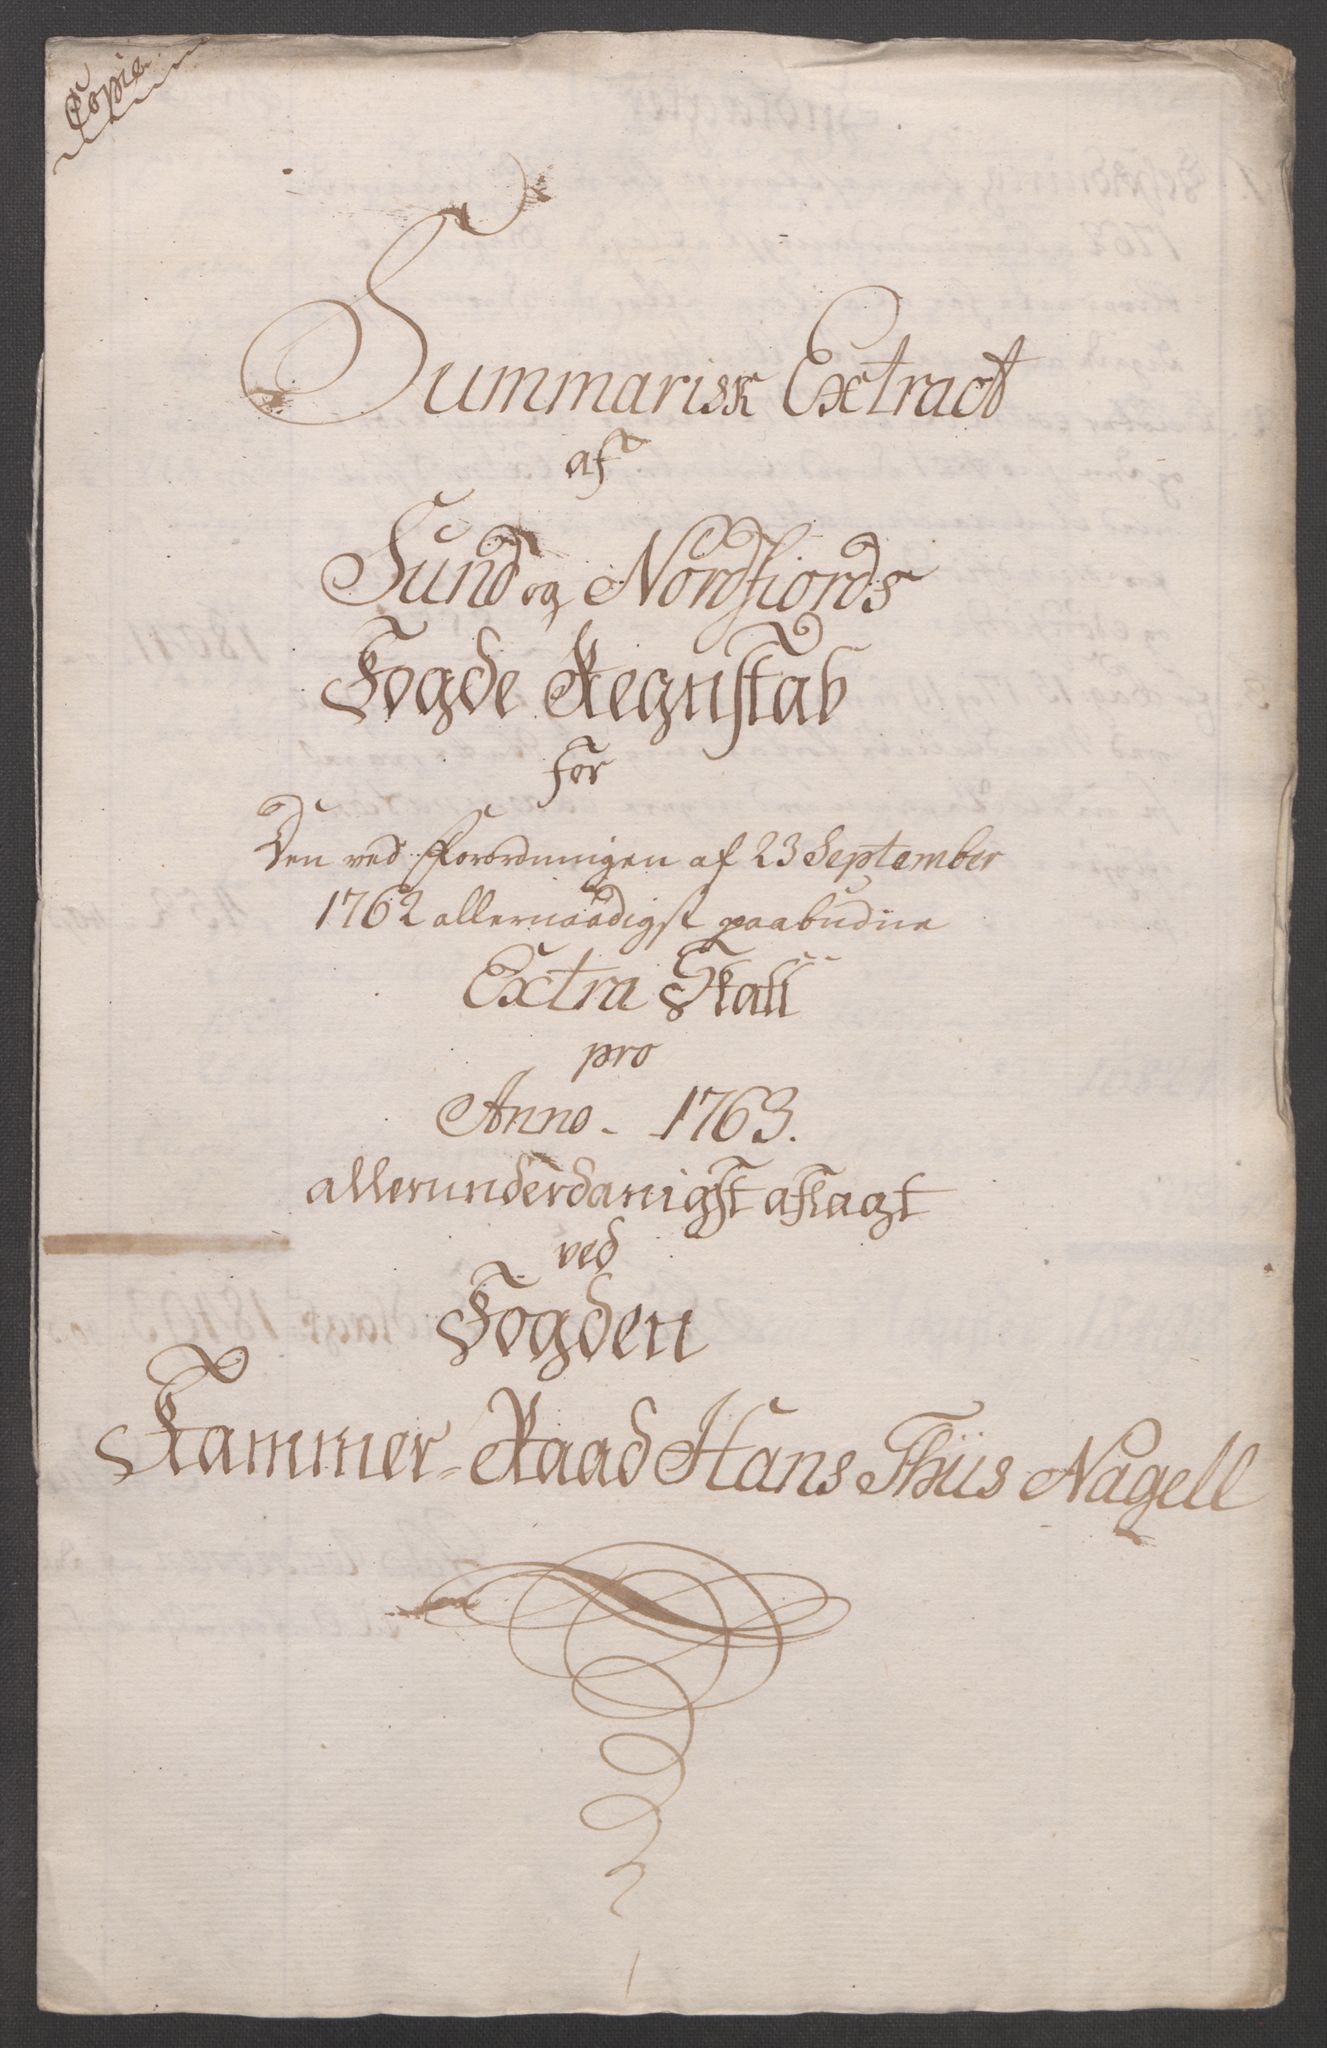 Copie
Summarisk Extract
af
Sund og Nordfiords
Fogde Regnskab
for
Den ved Forordningen af 23 September
1762 allernaadigst paabudne
Extra Skatt
pro
Anno - 1763.
allerunderdanigst aflagt
ved
Fogden
Kammer-Raad Hans Thiis Nagell